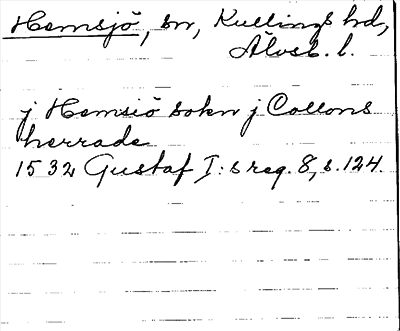 Hemsjö, sn, Kullings hd,
Älvsb. l.
j Hemsiö sokn j Collons
herrade
1532 Gustaf I:s reg. 8, s. 124.